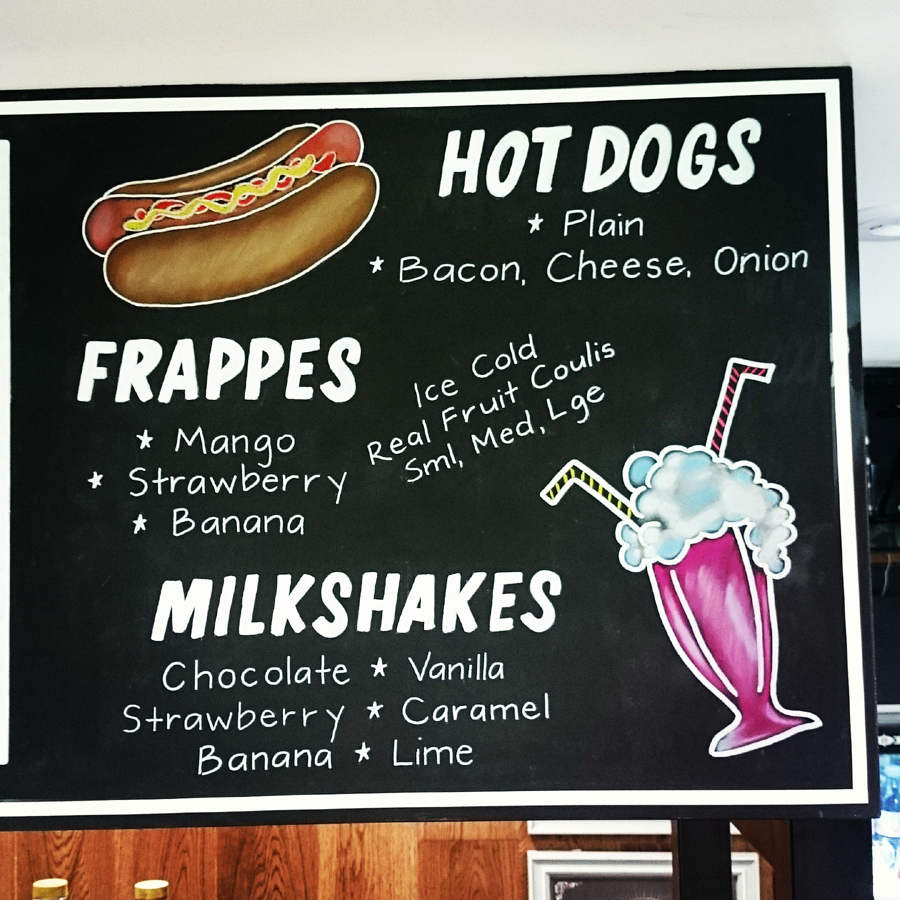 HOT DOGS
* Plain
* Bacon, Cheese, Onion
FRAPPES
* Mango
* Strawberry
* Banana
Ice Cold
Real Fruit Coulis
Sml, Med, Lge
MILKSHAKES
Chocolate * Vanilla
Strawberry * Caramel
Banana * Lime